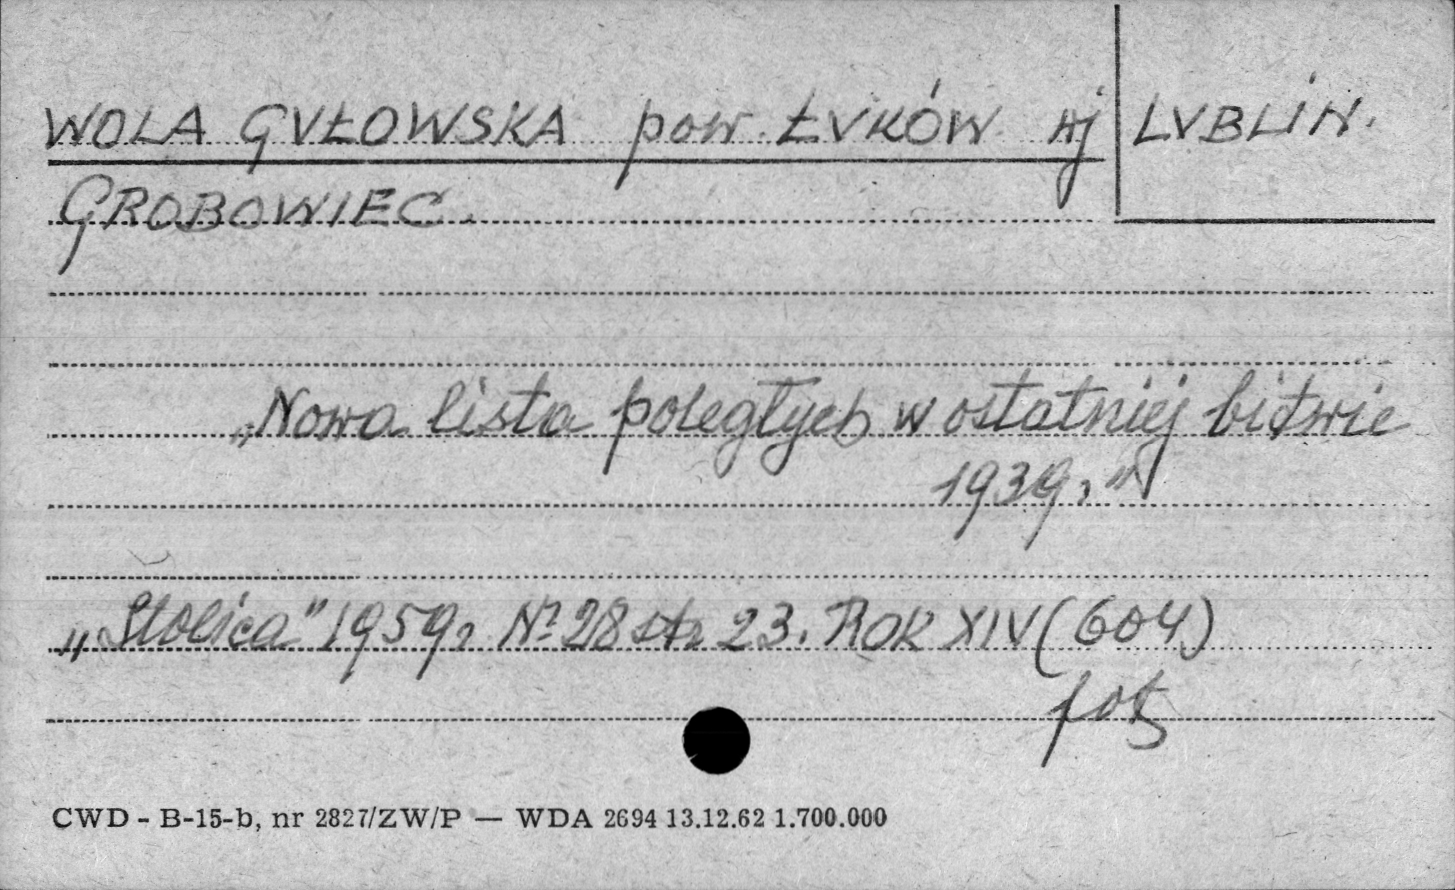 WOLA GUŁOWSKA pow. ŁUKÓW wj LUBLIN.
GROBOWIEC.
„Nowa lista poległych w ostatniej bitwie
1939."
„Stolica" 1959r. Nº 28 str 23. ROK XIV (604)
fot
CWD - B-15-b, nr 2827/ZW/P — WDA 2694 13.12.62 1.700.000